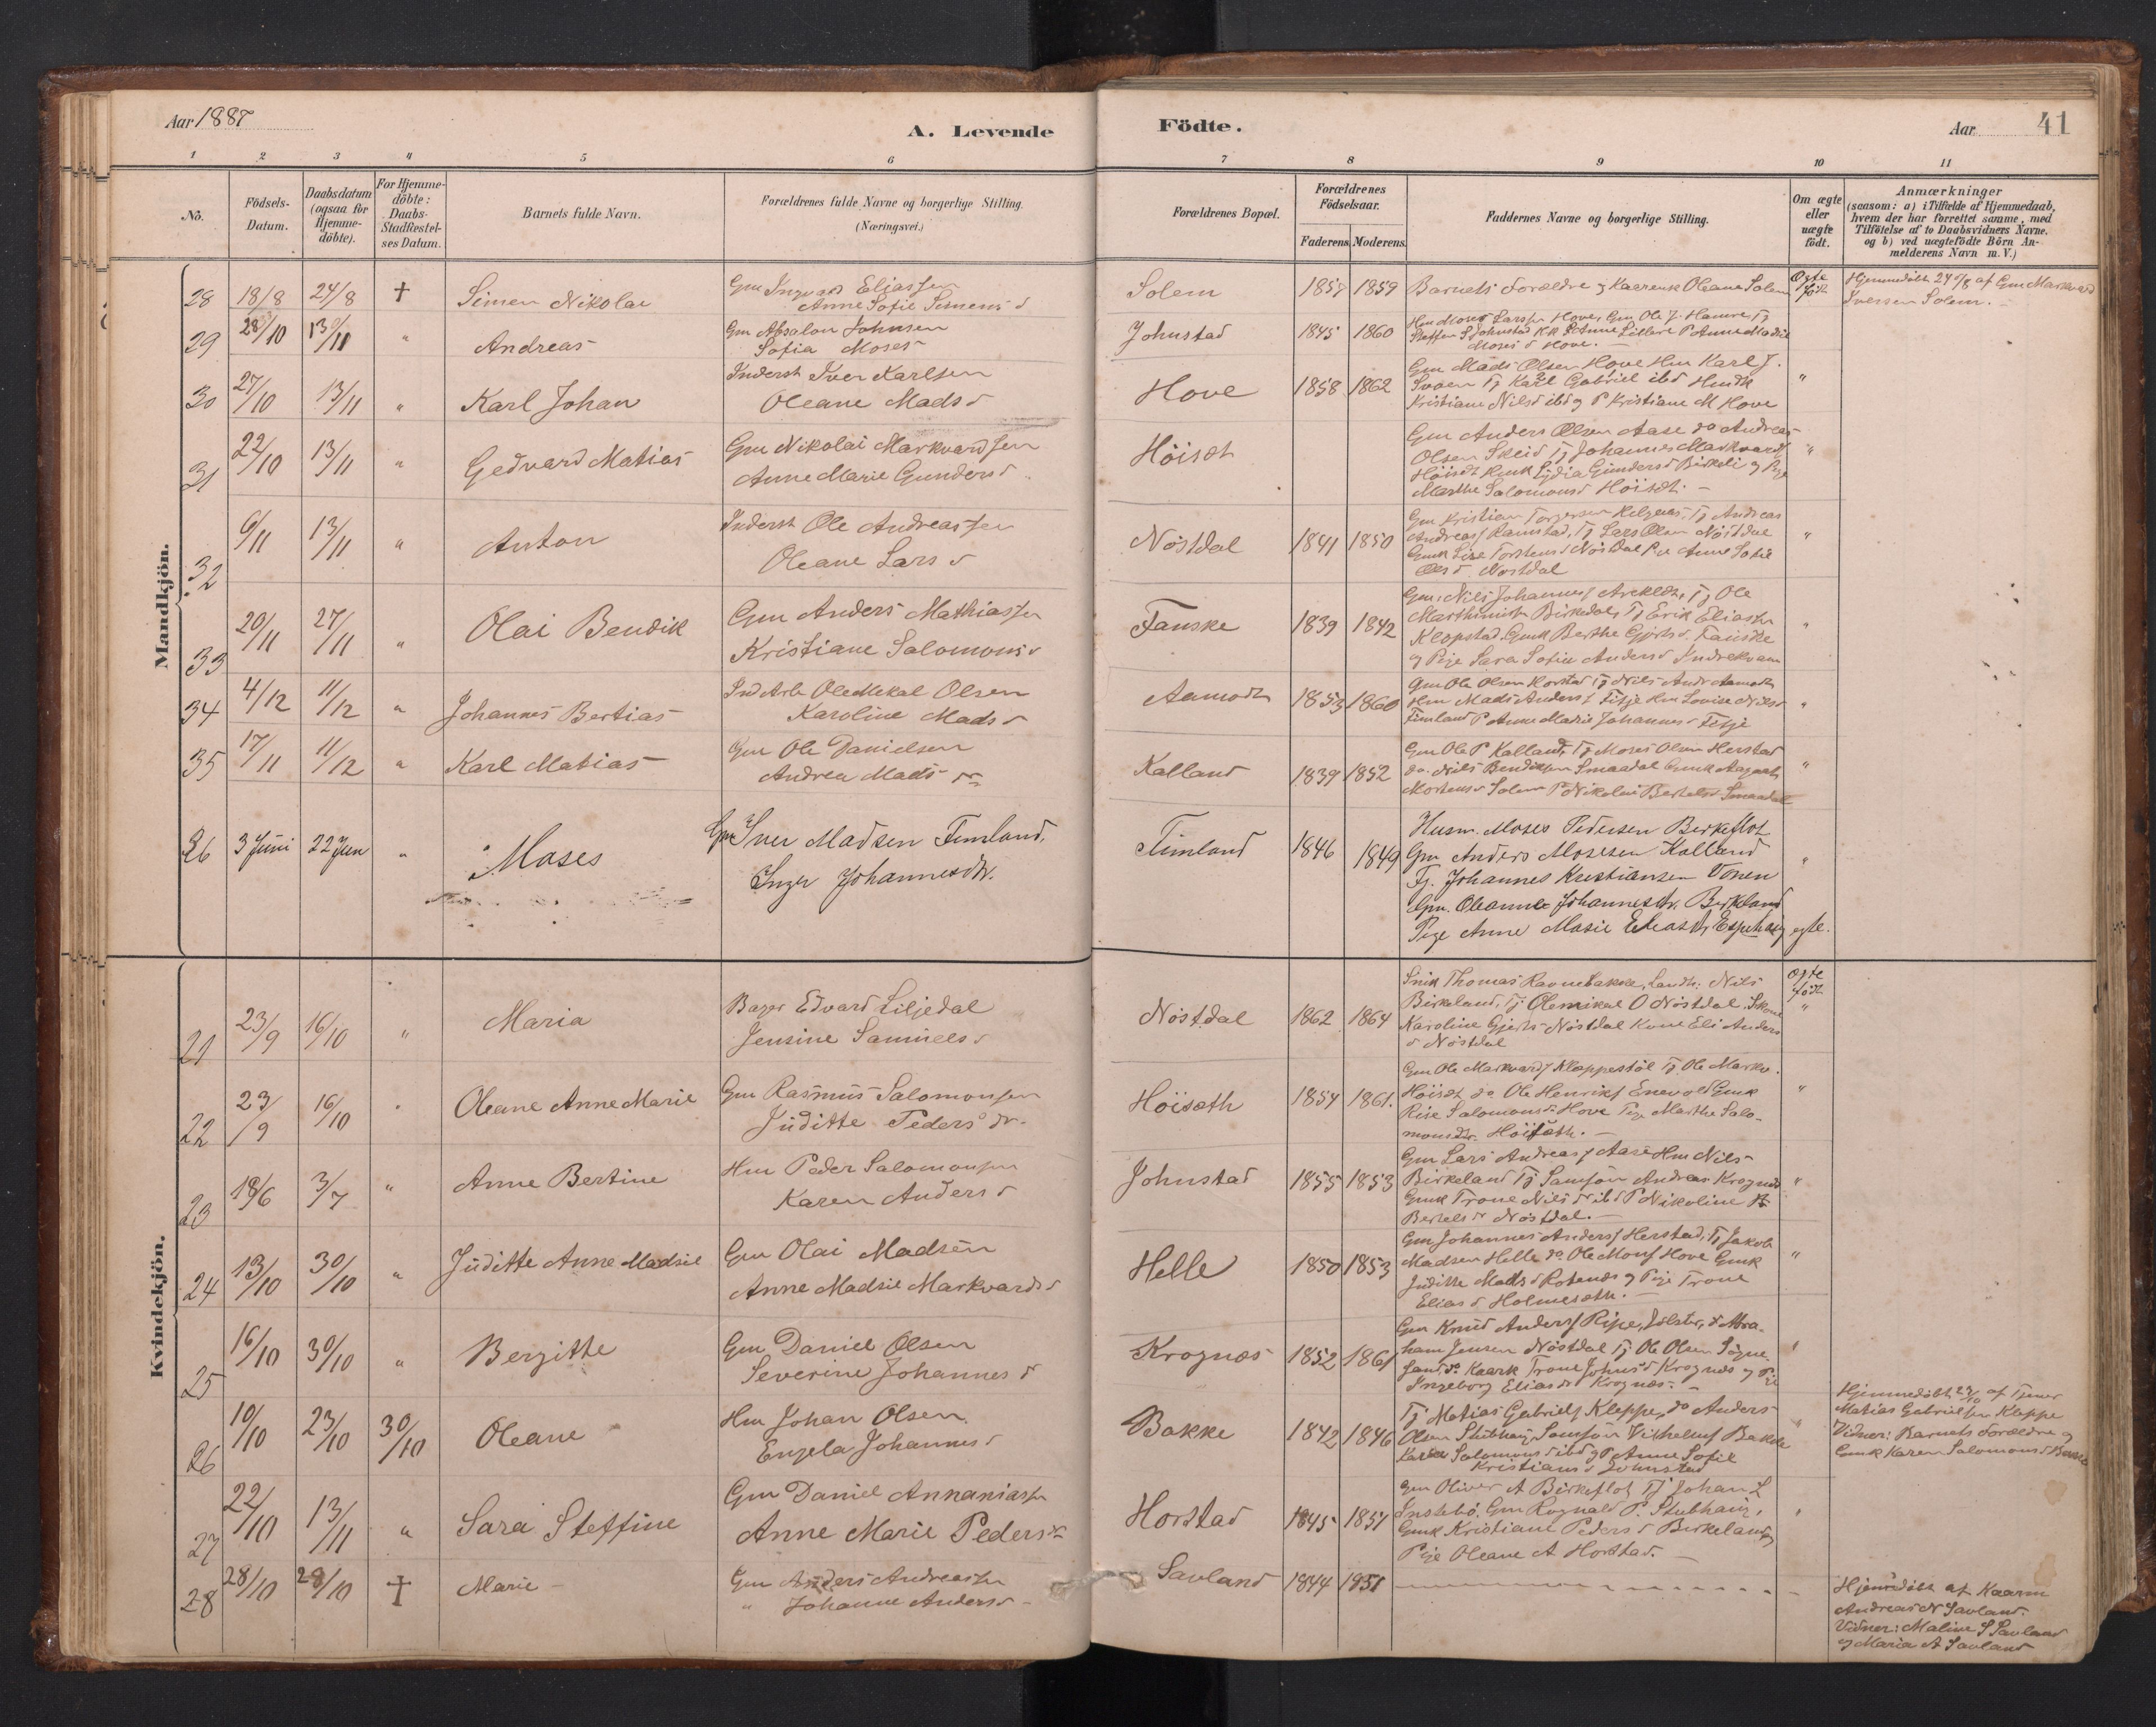 Aar 1887
A. Levende
Födte.
Aar
41
1 2 3 4 5 6 7 8 9 10 11
No.
Födsels-
Datum.
Daabsdatum
(ogsaa for
Hjemme-
döbte).
For Hjemme-
döbte:
Daabs-
Stadfæstel-
ses Datum.
Barnets fulde Navn.
Forældrenes fulde Navne og borgerlige Stilling.
(Næringsvei.)
Forældrenes Bopæl.
Forældrenes
Födselsaar.
Faderens. Moderens.
Faddernes Navne og borgerlige Stilling.
Om ægte
eller
uægte
födt.
Anmærkninger
(saasom: a) i Tilfælde af Hjemmedaab,
hvem der har forrettet samme, med
Tilföielse af to Daabsvidners Navne.
og b) ved uægtefödte Börn An-
melderens Navn m. V.)
Mandkjön.
28 18/8 24/8 † Simen Nikolai
Gm Eliassen
Anne Sofie Simens d
Solem 1857 1859
Barnets Forældre og Kaarenk Oleane Solem
Ægte
födt
Hjemmedöbt 24/8 af Gm Markvard
Iversen Solem.
29 28/10 13/11 " Andreas
Gm Absalon Johnsen
Sofia Moses
Johnstad 1845 1860
Hm Moses Larssen Hove, Gm Ole J. Hamre, Tj
Steffen S Johnstad P Anne Madsie
Moses d Hove.
30 27/10 13/11 " Karl Johan
Inderst Iver Karlsen
Oleane Mads d
Hove 1858 1862 "
Gm Mads Olsen Hove Hm Karl J.
Svoen Tj Karl Gabriel ibd Hmdk
Kristiane Nilsd ibd og P Kristiane M Hove
31 22/10 13/11 " Gedvard Matias
Gm Nikolai Markvardsen
Anne Marie Gunders d
Höiset "
Gm Anders Olsen Aase do Andreas
Olsen Skeid Tj Johannes Markvards
Höiset Kmk Lydia Gunders d Birkeli og Pige
Marthe Salomons d Höiset.
32 6/11 13/11 " Anton
Inderst Ole Andreassen
Oleane Lars d
Nöstdal 1841 1850 "
Gm Kristian Torgersen Helgeaas, Tj Andreas
Andreas Ramstad, Tj Lars Olsen Nöstdal
Gmk Lise Torstens d Nöstdal Pie Anne Sofie
Ols d Nostdal
33 20/11 27/11 " Olai Bendik
Gm Anders Mathiassen
Kristiane Salomons d
Fauske 1839 1842 "
Gm Nils Johannes Tj Ole
Marthinius Birkedal, Tj Erik Eliassen
Klopstad. Gmk Berthe Gjerts d Fauske
og Pige Sara Sofie Anders d Indrekvam
34 4/12 11/12 " Johannes Bertias
Ind Arb Ole Mekal Olsen
Karoline Mads d
Aamodt 1853 1860 "
Gm Ole Olsen Horstad Tj Nils Andr Aamodt
Hm Mads Anders Fitje Hm Lovise Nilsd
Timland P Anne Madsie Johannes d Fitje
35 17/11 11/12 " Karl Matias
Gm Ole Danielsen
Andrea Mads dr
Kalland 1839 1852 "
Gm Ole P Kalland, Tj Moses Olsen Herstad
do. Nils Bendiksen Smaadal Gmk Aagaat
Mortens d Solem P Nikolai Bertels Smaadal
36 3 Juni 22 Jun " Moses
Gm Iver Madsen Timland.
Inger Johannesdtr.
Timland 1846 1849 "
Husm. Moses Pedersen Birkeflot
Gm Anders Mosesen Kalland
Tj. Johannes Kristiansen Vonen
Gm. Oleanne Johannesdr. Birkland
Pige Anne Masie Eliasdr Espehaug ægte.
Kvindekjön.
21 23/9 16/10 " Maria
Bager Edvard Liljedal
Jensine Samuels d
Nöstdal 1862 1864
Ægte
födt
"
Snik Thomas Ravnebakke, Landh: Nils
Birkeland, Tj: Olemikal O Nöstdal, Skom
Karoline Gjerts Nöstdal Kone Eli Anders
d Nöstdal
22 23/9 16/10 " Oleane Anne Marie
Gm Rasmus Salomonsen
Juditte Peders dr.
Höisæth 1854 1861. "
Gm Ole Markvards Klappestöl Tj Ole Markv.
Höiset do Ole Henriks Enevold Gmk
Rise Salomonsdr Hove Pige Marthe Salo-
monsdtr. Höisæth.
23 18/6 3/7 " Anne Bertine
Hm Peder Salomonsen
Karen Anders d
Johnstad 1855 1853 "
Gm Lars Andreas Aase Hm Nils
Birkeland Tj Samson Andreas Krognæs
Gmk Trone Nils d ibd P Nikoline
Bertels dr Nöstdal.
24 13/10 30/10 " Juditte Anne Madsie
Gm Olai Madsen
Anne Madsie Markvards d
Helle 1850 1853 "
Gm Johannes Anders Herstad, Tj Jakob
Madsen Helle do Ole Mons Hove Gmk
Juditte Mads d Rotenæs og Pige Trone
Elias d Holmesæth.
25 16/10 30/10 " Bergitte
Gm Daniel Olsen
Severine Johannes d
Krognæs 1852 1861
Gm Knud Anders Ripe, Jölster, do Abra-
ham Jensen Nöstdal Tj Ole Olsen Sögne-
sand, do Kaark Trone Johns d Krognæs og Pige
Ingeborg Elias dr Krognæs.
26 10/10 23/10 30/10 Oleane
Hm Johan Olsen
Engela Johannes d
Bakke 1842 1846 "
Tj Matias Gabriels Kleppe, do Anders
Olsen Stubhaug Samson Vilhelms Bakke
Karen Salomons d ibd og P Anne Sofie
Kristians d Johnstad
Hjemmedöbt 23/10 af Tjener
Matias Gabrielsen Kleppe
Vidner: Barnets Forældre og
Gmk Karen Salomons d Bakke
27 22/10 13/11 " Sara Steffine
Gm Daniel Annaniassen
Anne Marie Peders dr
Horstad 1845 1851
Gm Oliver A Birkeflot Tj Johan L
Instebö. Gm Rognald P. Stubhaug,
Gmk Kristiane Peders d Birkeland og
Pige Oleane A Horstad.
28 28/10 28/10 † Marie
Gm Anders Andreassen
" Johanne Anders d
Savland 1844 1851
Hjemmedöbt af Kaarm
Andreas N Savland.
Vidner: Maline S Savland
og Maria A Savland